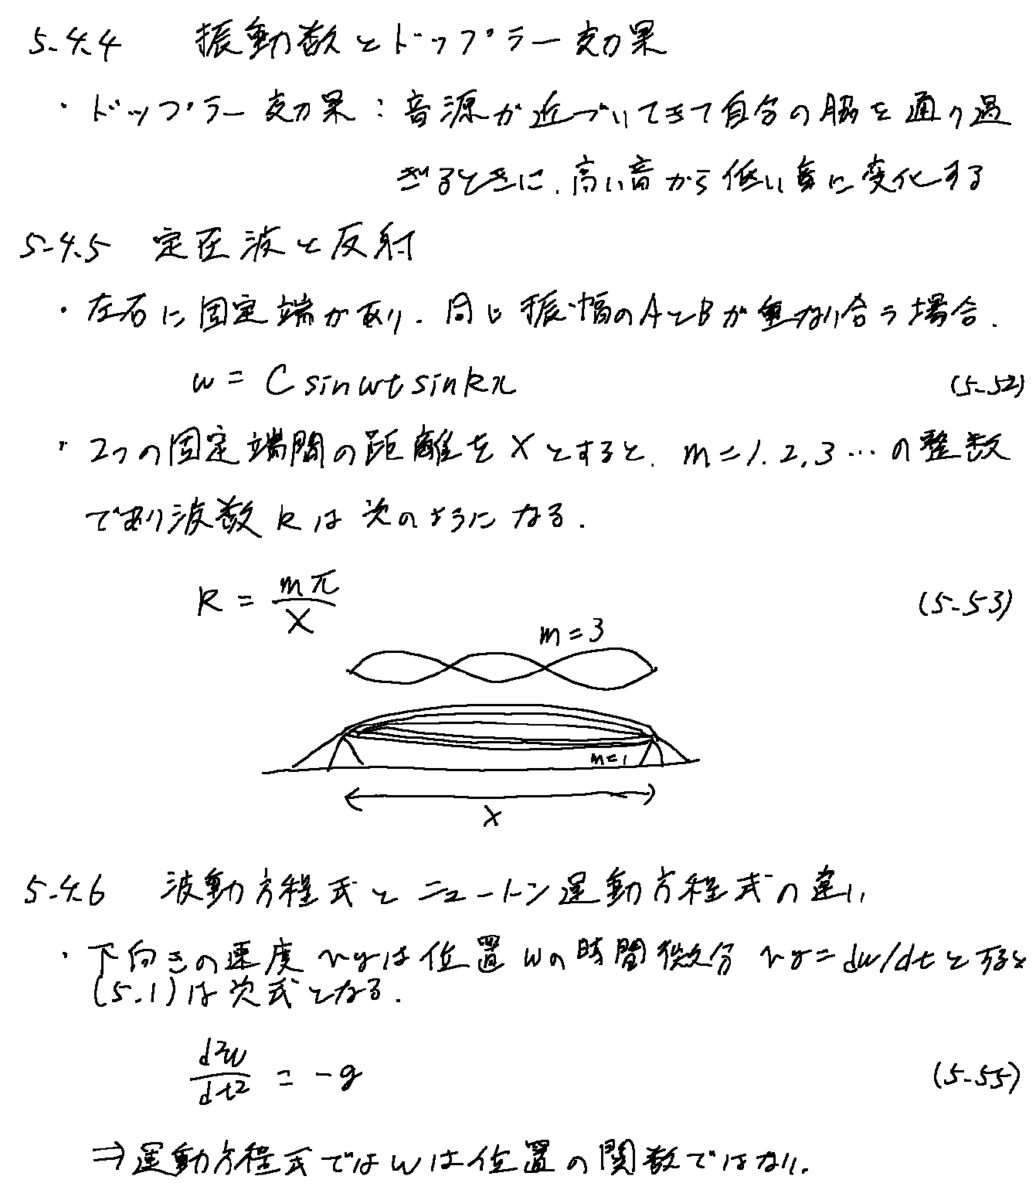 5.4.4 振動数とドップラー効果
・ドップラー効果：音源が近づいてきて自分の脇を通り過
ぎるときに、高い音から低い音に変化する
5.4.5 定在波と反射
・左右に固定端があり、同じ振幅のAとBが重なり合う場合、
w = C sin ωt sin kx (5.52)
・2つの固定端間の距離をXとすると、m=1.2.3…の整数
であり波数kは次のようになる。
k = mπ/X (5.53)
m=3
m=1
X
5.4.6 波動方程式とニュートン運動方程式の違い
・下向きの速度vyは位置wの時間微分 vy=dw/dtとすると
(5.1)は次式となる。
d²w/dt² = -g (5.55)
⇒運動方程式ではwは位置の関数ではない。